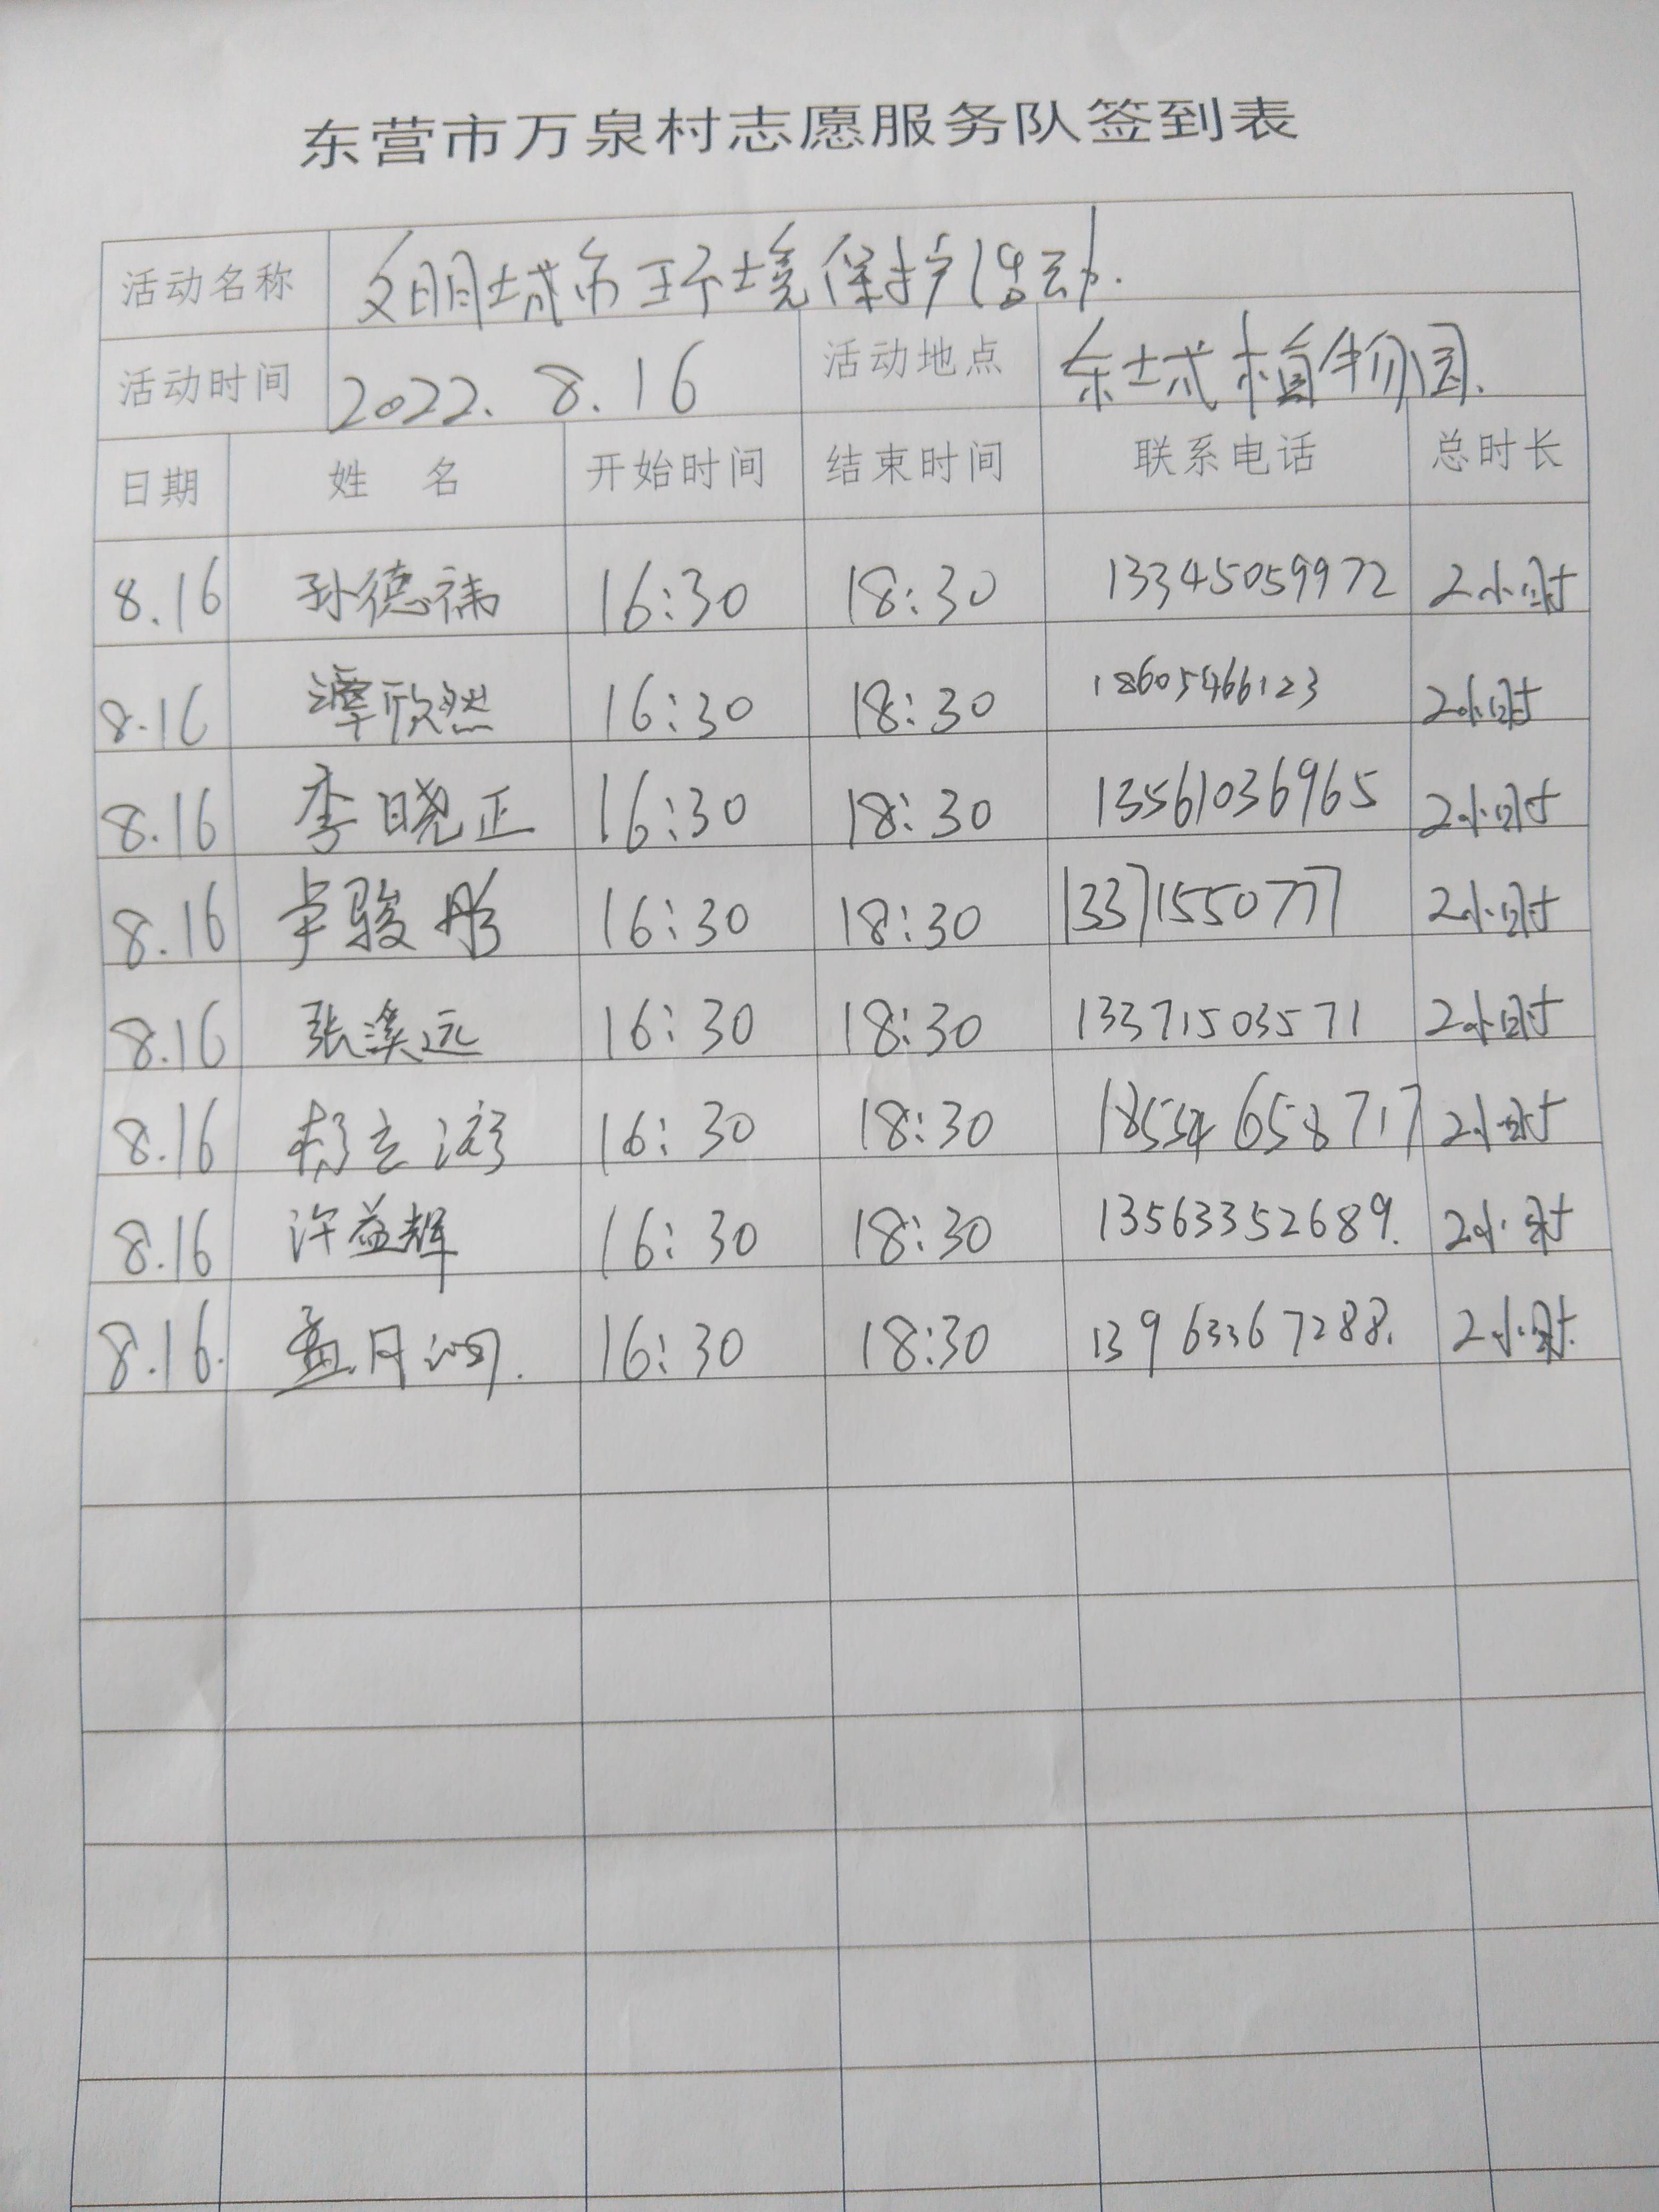 东营市万泉村志愿服务队签到表
活动名称 文明城市环境保护活动.
活动时间 2022.8.16 活动地点 东城植物园.
日期 姓 名 开始时间 结束时间 联系电话 总时长
8.16 孙德祎 16:30 18:30 13345059972 2小时
8.16 谭欣然 16:30 18:30 18605466123 2小时
8.16 李晓正 16:30 18:30 13561036965 2小时
8.16 卓骏彤 16:30 18:30 13371550777 2小时
8.16 张溪远 16:30 18:30 13371503571 2小时
8.16 16:30 18:30 18554658717 2小时
8.16 许益辉 16:30 18:30 13563352689. 2小时
8.16. 16:30 18:30 13963367288. 2小时.